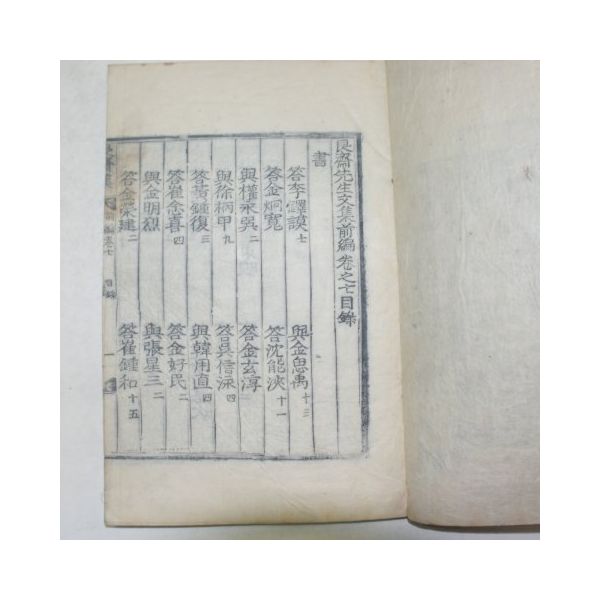 艮齋先生文集前編卷之七目錄
書
答李鐸謨 七 與金思禹 十三
答金炯寬 答沈能浹 十一
與權永吳 二 答金玄淳
與徐柄甲 九 答吳信泳 四
答黃鍾復 三 與韓用直 四
答崔念喜 四 答金好民 二
與金明烈 與張星三 二
答金榮建 二 答崔鍾和 十五
前編卷七 目錄 一